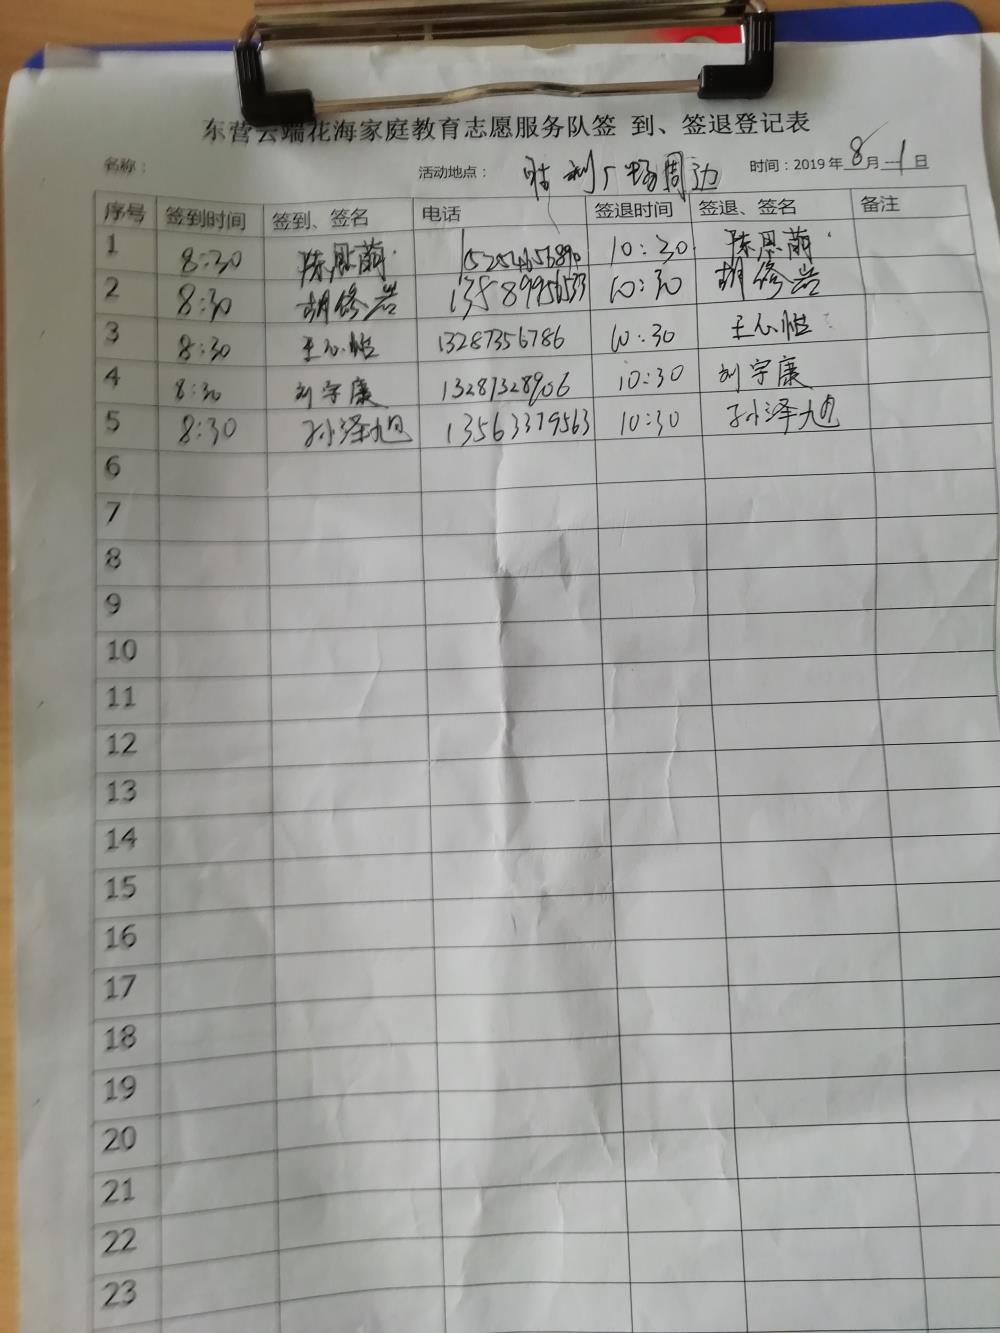 东营云端花海家庭教育志愿服务队签 到、签退登记表
名称： 活动地点： 胜利广场周边 时间：2019年8月1日
序号 签到时间 签到、签名 电话 签退时间 签退、签名 备注
1 8:30 陈思萌 10:30 陈思萌
2 8:30 胡修岩 13589956533 10:30 胡修岩
3 8:30 王心怡 13287356786 10:30 王心怡
4 8:30 刘宇康 13287328906 10:30 刘宇康
5 8:30 孙泽旭 13563379563 10:30 孙泽旭
6
7
8
9
10
11
12
13
14
15
16
17
18
19
20
21
22
23